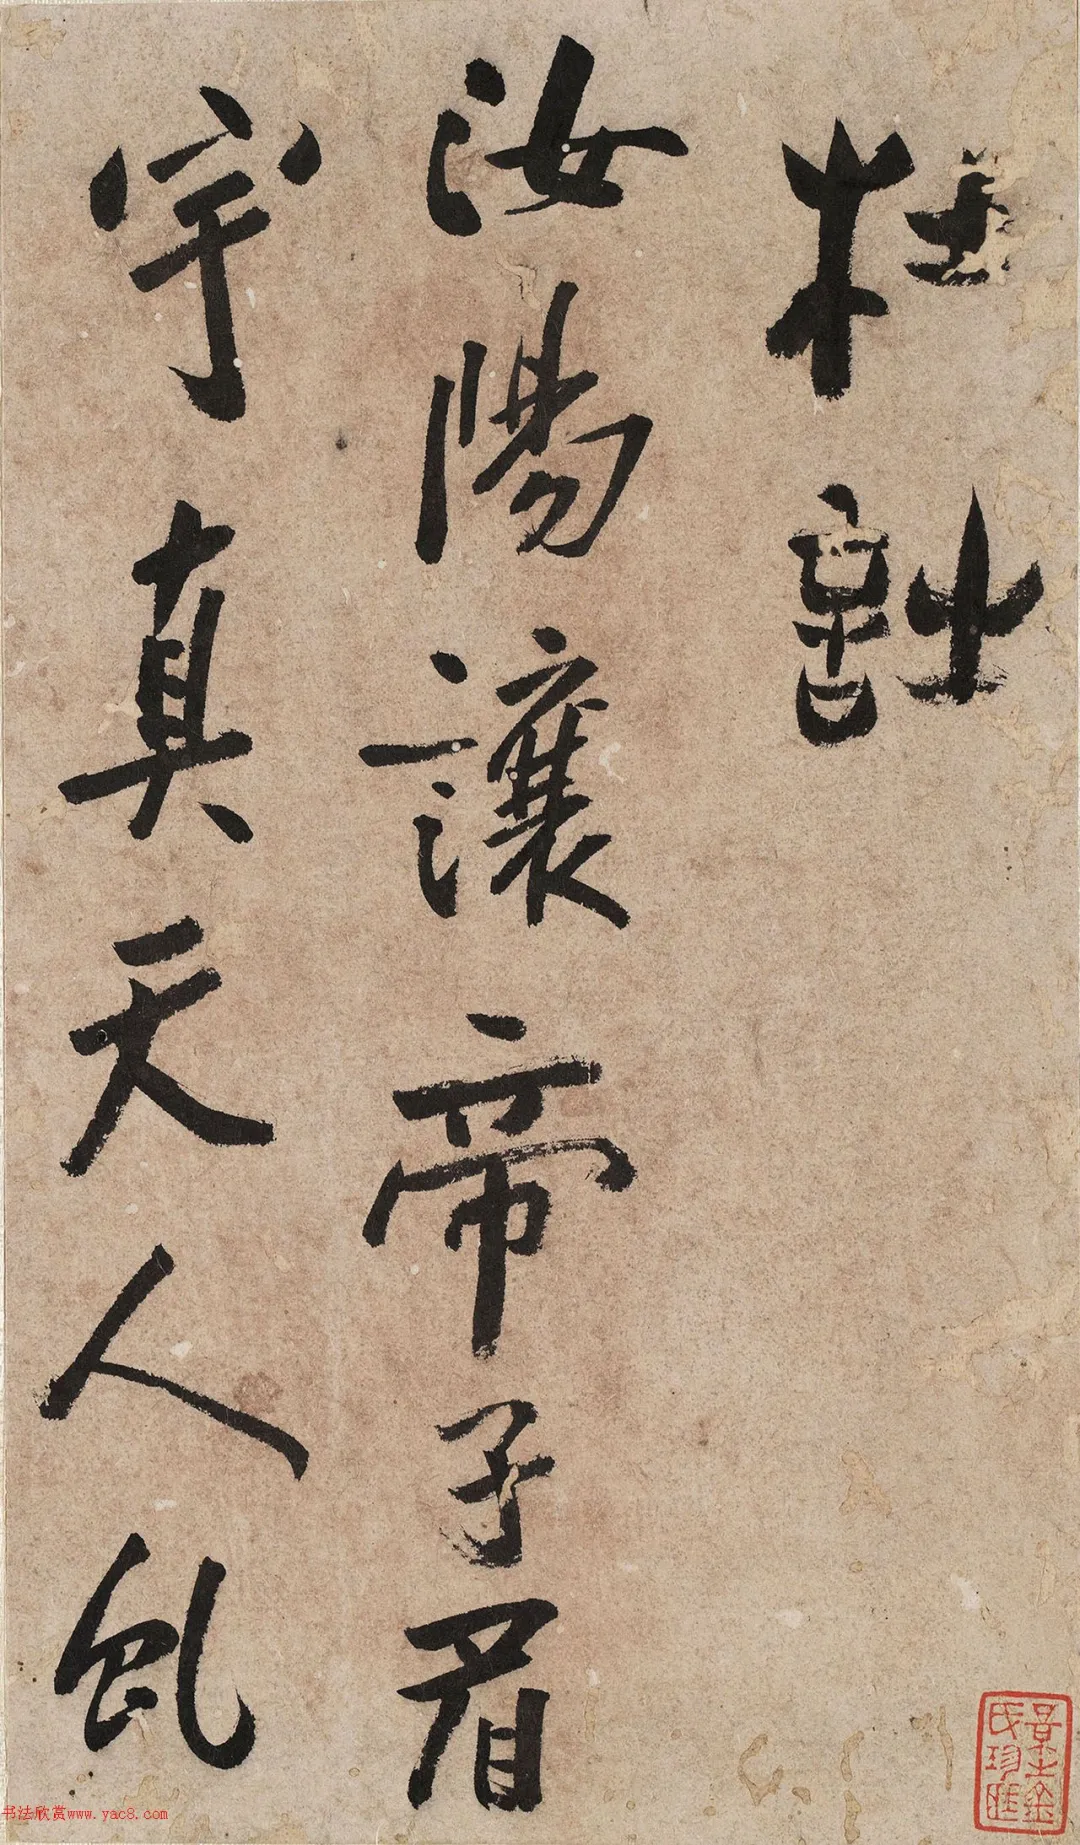 杜詩
汝陽讓帝子眉
宇真天人虬
书法欣赏www.yac8.com